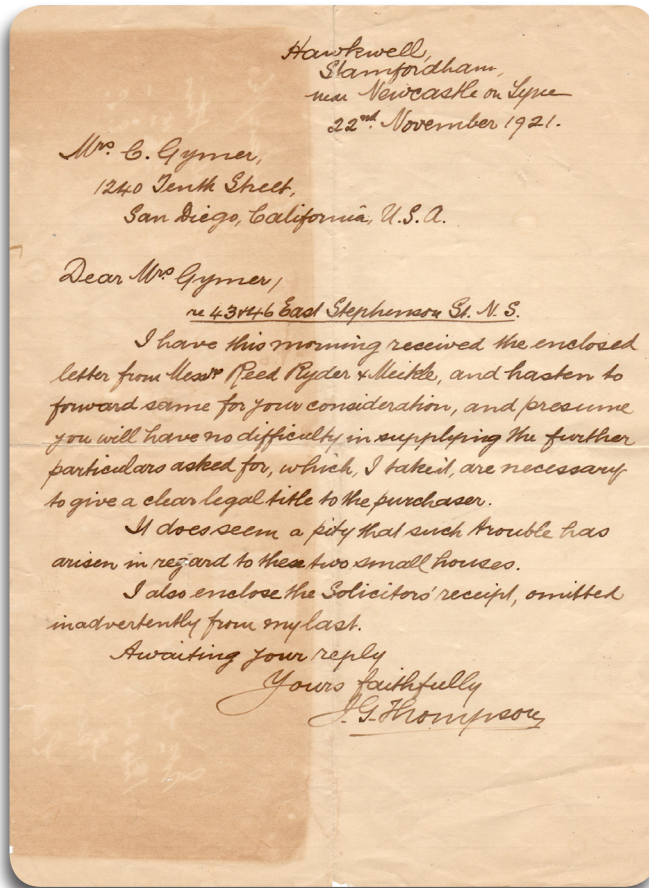 Hawkwell,
Stamfordham,
near Newcastle on Tyne
22nd. November 1921.
Mrs C. Gymer,
1240 Tenth Street,
San Diego, California, U.S.A.
Dear Mrs Gymer,
re 43 & 46 East Stephenson St. N.S.
I have this morning received the enclosed
letter from Messrs Reed Ryder & Meikle, and hasten to
forward same for your consideration, and presume
you will have no difficulty in supplying the further
particulars asked for, which, I take it, are necessary
to give a clear legal title to the purchaser.
It does seem a pity that such trouble has
arisen in regard to these two small houses.
I also enclose the Solicitors' receipt, omitted
inadvertently from my last.
Awaiting your reply
Yours faithfully
J. G. Thompson